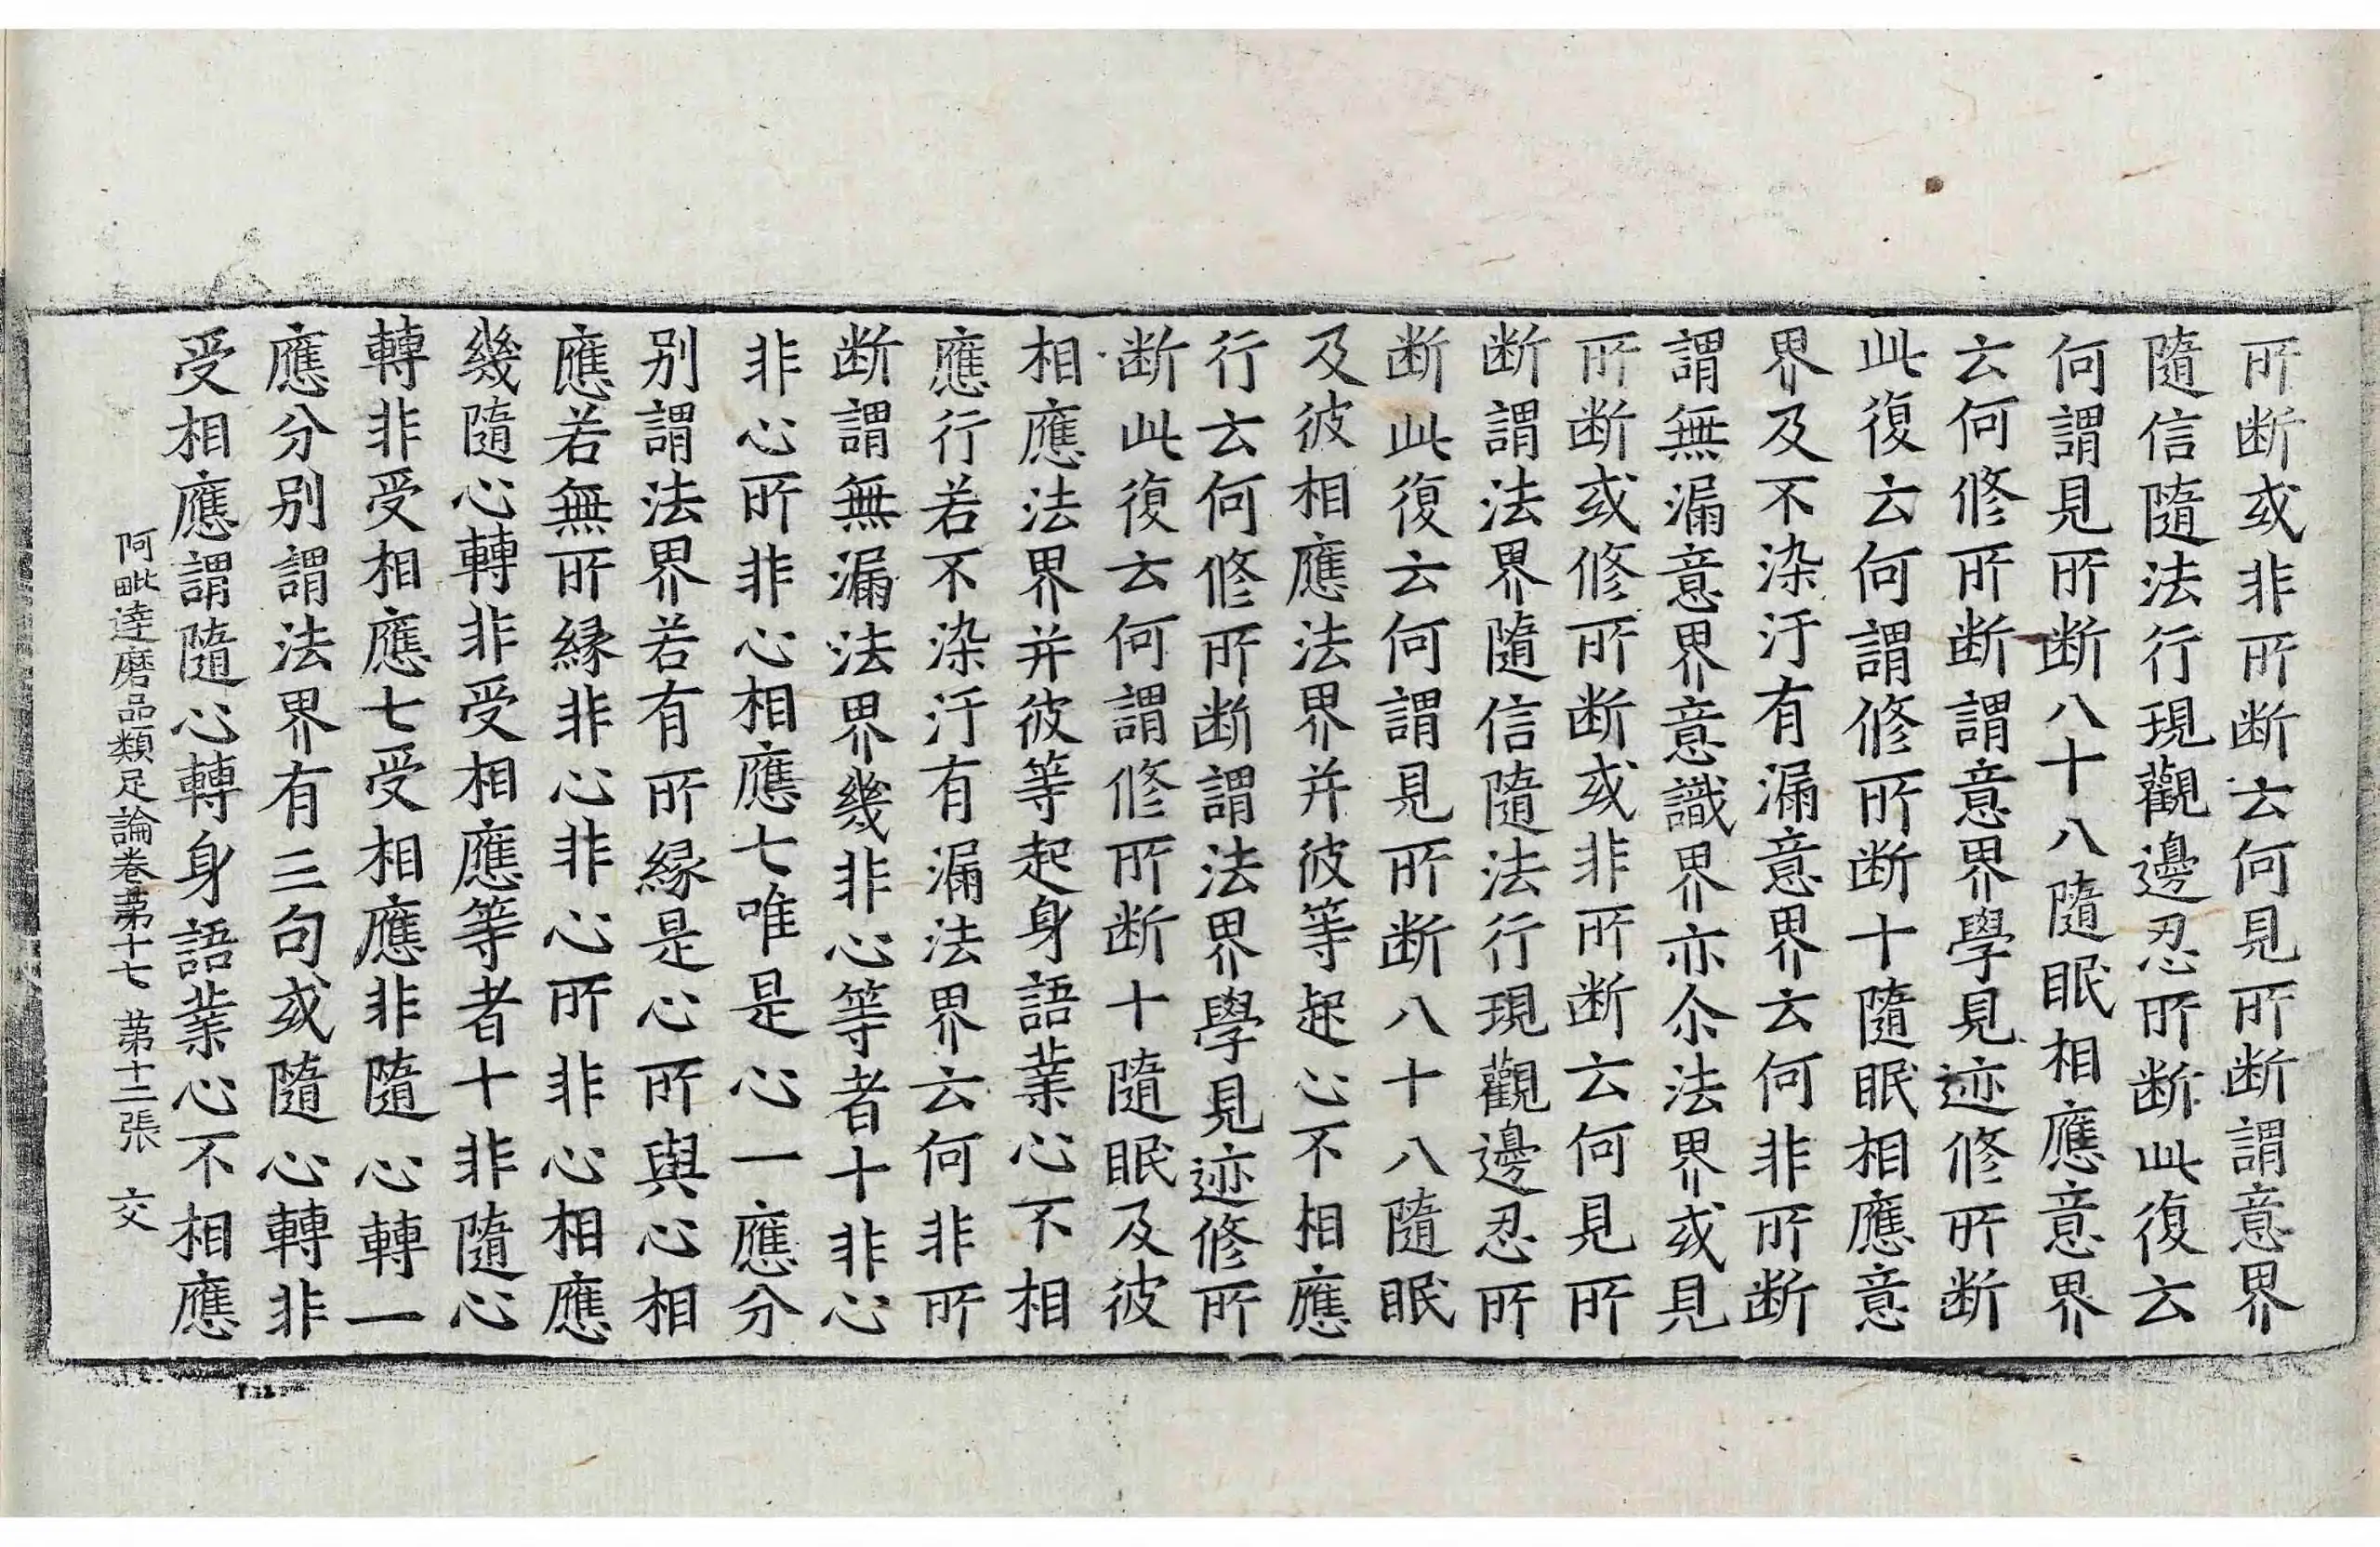 所断或非所断云何見所断謂意界
隨信隨法行現觀邊忍所断此復云
何謂見所断八十八隨眠相應意界
云何修所断謂意界學見迹修所断
此復云何謂修所断十隨眠相應意
界及不染汙有漏意界云何非所断
謂無漏意界意識界亦尒法界或見
所断或修所断或非所断云何見所
断謂法界隨信隨法行現觀邊忍所
断此復云何謂見所断八十八隨眠
及彼相應法界并彼等起心不相應
行云何修所断謂法界學見迹修所
断此復云何謂修所断十隨眠及彼
相應法界并彼等起身語業心不相
應行若不染汙有漏法界云何非所
断謂無漏法界幾非心等者十非心
非心所非心相應七唯是心一應分
别謂法界若有所緣是心所與心相
應若無所緣非心非心所非心相應
幾隨心轉非受相應等者十非隨心
轉非受相應七受相應非隨心轉一
應分别謂法界有三句或隨心轉非
受相應謂隨心轉身語業心不相應
阿毗逹磨品類足論卷苐十七 苐十二張 交